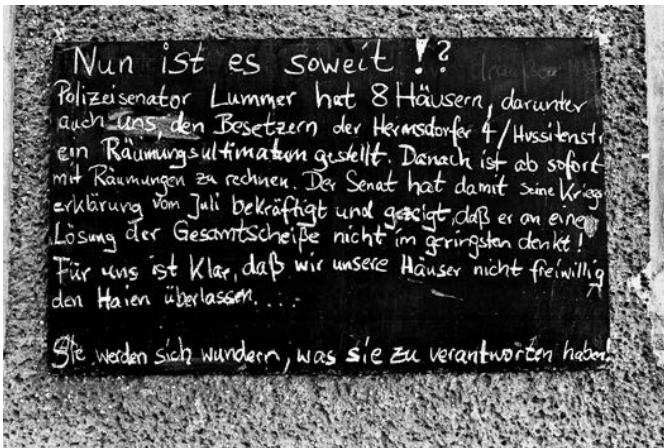 Nun ist es soweit !?
Polizeisenator Lummer hat 8 Häusern, darunter
auch uns, den Besetzern der Hermsdorfer 4/Hussitenstr.
ein Räumungsultimatum gestellt. Danach ist ab sofort
mit Räumungen zu rechnen. Der Senat hat damit seine Kriegs
erklärung vom Juli bekräftigt und gezeigt, daß er an eine
Lösung der Gesamtscheiße nicht im geringsten denkt!
Für uns ist Klar, daß wir unsere Häuser nicht freiwillig
den Haien überlassen....
Sie werden sich wundern, was sie zu verantworten haben!